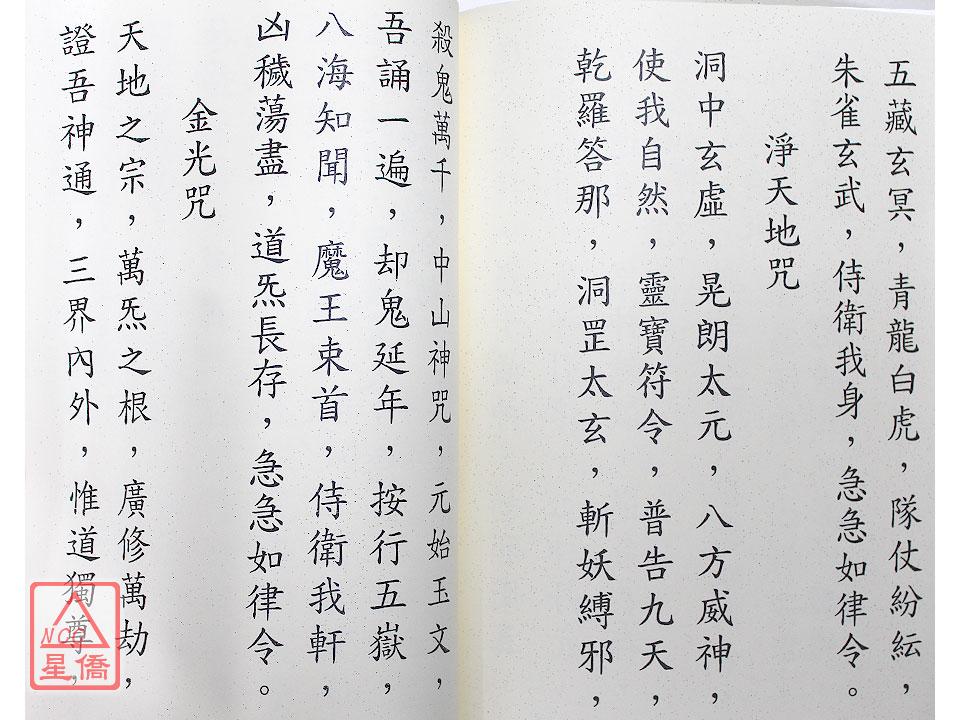 五藏玄冥，青龍白虎，隊仗紛紜，
朱雀玄武，侍衛我身，急急如律令。
淨天地咒
洞中玄虛，晃朗太元，八方威神，
使我自然，靈寶符令，普告九天，
乾羅答那，洞罡太玄，斬妖縛邪，
殺鬼萬千，中山神咒，元始玉文，
吾誦一遍，却鬼延年，按行五嶽，
八海知聞，魔王束首，侍衛我軒，
凶穢蕩盡，道炁長存，急急如律令。
金光咒
天地之宗，萬炁之根，廣修萬劫，
證吾神通，三界內外，惟道獨尊，
NCC
星僑